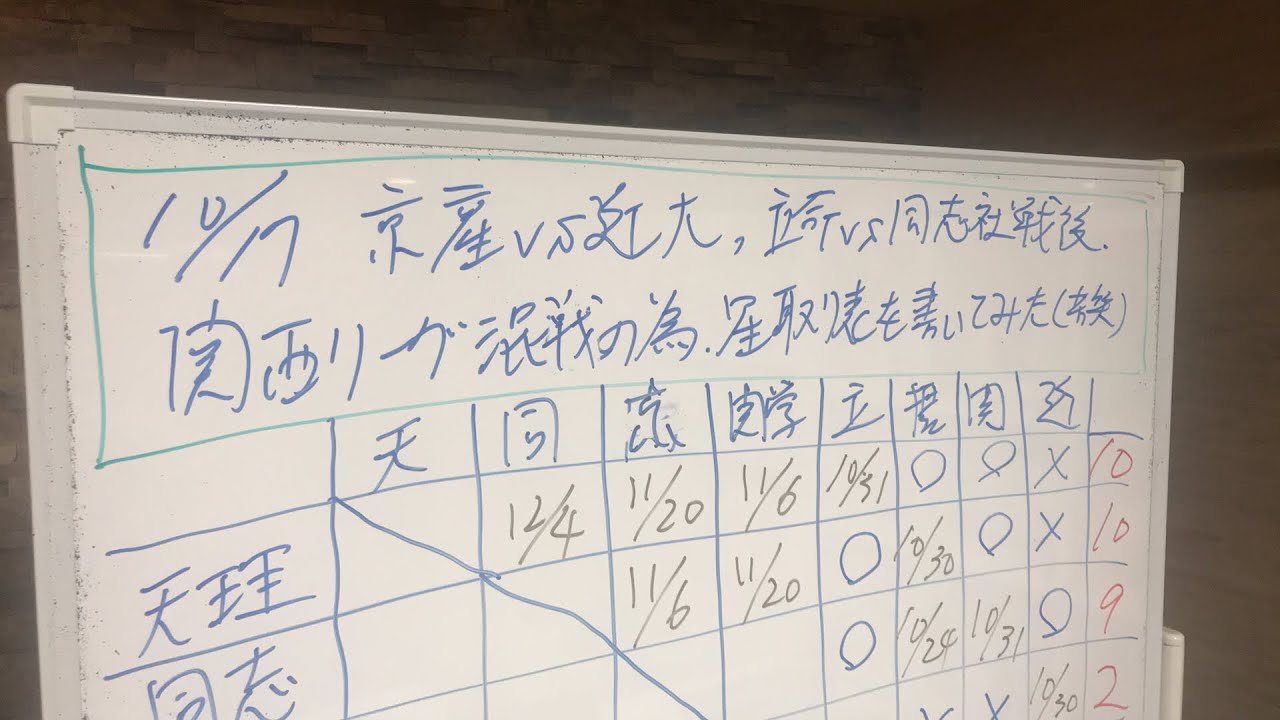 10/17 京産vs近大,立命vs同志社戦後.
関西リーグ混戦の為.星取り表を書いてみた(苦笑)
天 同 京 関学 立 摂 関 近
天理 12/4 11/20 11/6 10/31 ○ ○ × 10
同志 11/6 11/20 ○ 10/30 ○ × 10
○ 10/24 10/31 ○ 9
× 10/30 2